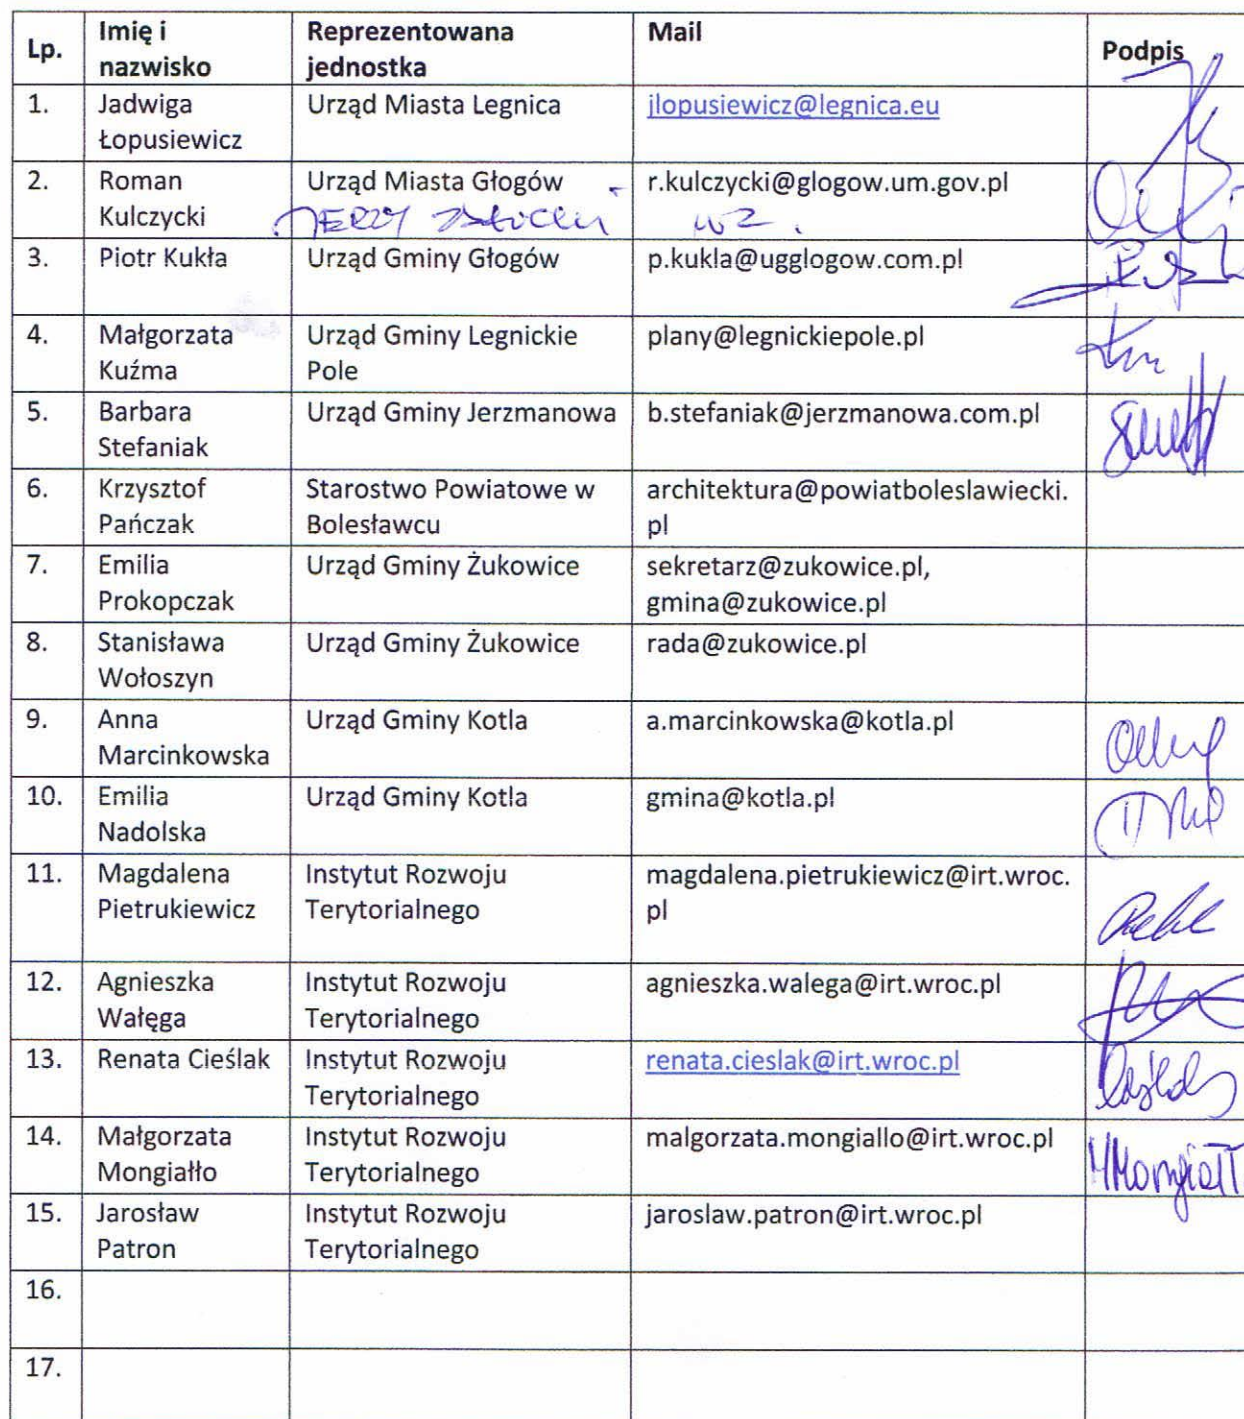 Lp. Imię i nazwisko Reprezentowana jednostka Mail Podpis
1. Jadwiga Łopusiewicz Urząd Miasta Legnica jlopusiewicz@legnica.eu
2. Roman Kulczycki Urząd Miasta Głogów r.kulczycki@glogow.um.gov.pl
JERZY wz.
3. Piotr Kukła Urząd Gminy Głogów p.kukla@ugglogow.com.pl
4. Małgorzata Kuźma Urząd Gminy Legnickie Pole plany@legnickiepole.pl
5. Barbara Stefaniak Urząd Gminy Jerzmanowa b.stefaniak@jerzmanowa.com.pl
6. Krzysztof Pańczak Starostwo Powiatowe w Bolesławcu architektura@powiatboleslawiecki.pl
7. Emilia Prokopczak Urząd Gminy Żukowice sekretarz@zukowice.pl, gmina@zukowice.pl
8. Stanisława Wołoszyn Urząd Gminy Żukowice rada@zukowice.pl
9. Anna Marcinkowska Urząd Gminy Kotla a.marcinkowska@kotla.pl
10. Emilia Nadolska Urząd Gminy Kotla gmina@kotla.pl
11. Magdalena Pietrukiewicz Instytut Rozwoju Terytorialnego magdalena.pietrukiewicz@irt.wroc.pl
12. Agnieszka Wałęga Instytut Rozwoju Terytorialnego agnieszka.walega@irt.wroc.pl
13. Renata Cieślak Instytut Rozwoju Terytorialnego renata.cieslak@irt.wroc.pl
14. Małgorzata Mongiałło Instytut Rozwoju Terytorialnego malgorzata.mongiallo@irt.wroc.pl
15. Jarosław Patron Instytut Rozwoju Terytorialnego jaroslaw.patron@irt.wroc.pl
16.
17.